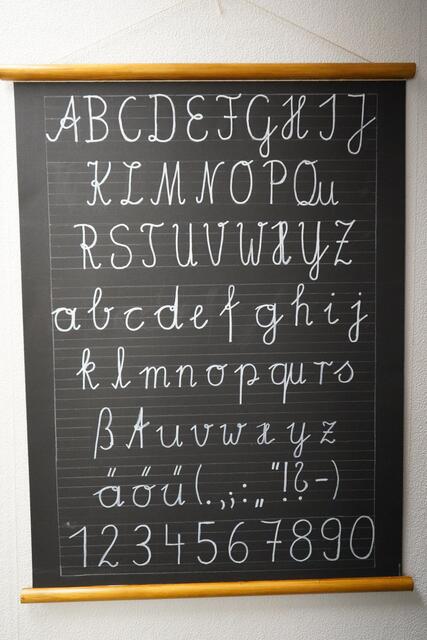 ABCDEFGHIJ
KLMNOPQu
RSTUVWXYZ
abcdefghij
klmnopqurs
ßtuvwxyz
äöü(.,;:„"!?-)
1234567890